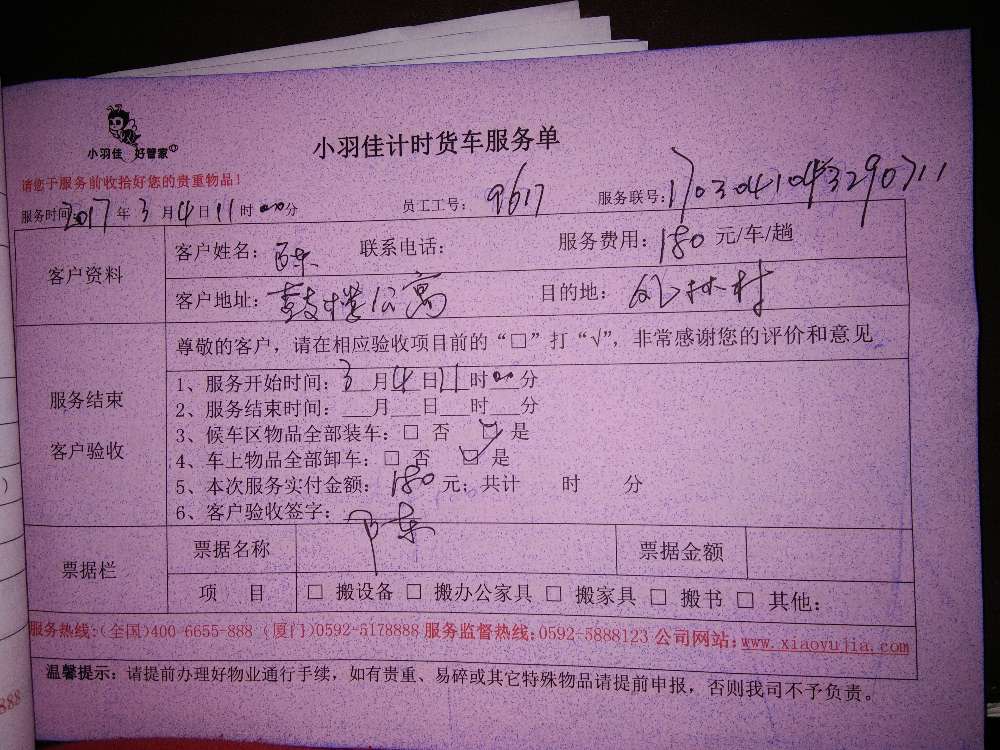 小羽佳 好管家
小羽佳计时货车服务单
请您于服务前收拾好您的贵重物品！
服务时间：2017年3月4日11时00分 员工工号：9617 服务联号：
客户资料
客户姓名：陈 联系电话： 服务费用：180元/车/趟
客户地址：鼓楼公寓 目的地：凤林村
服务结束
客户验收
尊敬的客户，请在相应验收项目前的“□”打“√”，非常感谢您的评价和意见
1、服务开始时间：3月4日11时00分
2、服务结束时间：___月___日___时___分
3、候车区物品全部装车：□ 否 ☑ 是
4、车上物品全部卸车：□ 否 ☑ 是
5、本次服务实付金额：180元；共计 时 分
6、客户验收签字：陈
票据栏
票据名称 票据金额
项 目 □ 搬设备 □ 搬办公家具 □ 搬家具 □ 搬书 □ 其他：
服务热线:(全国)400-6655-888 (厦门)0592-5178888 服务监督热线:0592-5888123 公司网站:www.xiaoyujia.com
温馨提示：请提前办理好物业通行手续，如有贵重、易碎或其它特殊物品请提前申报，否则我司不予负责。
888